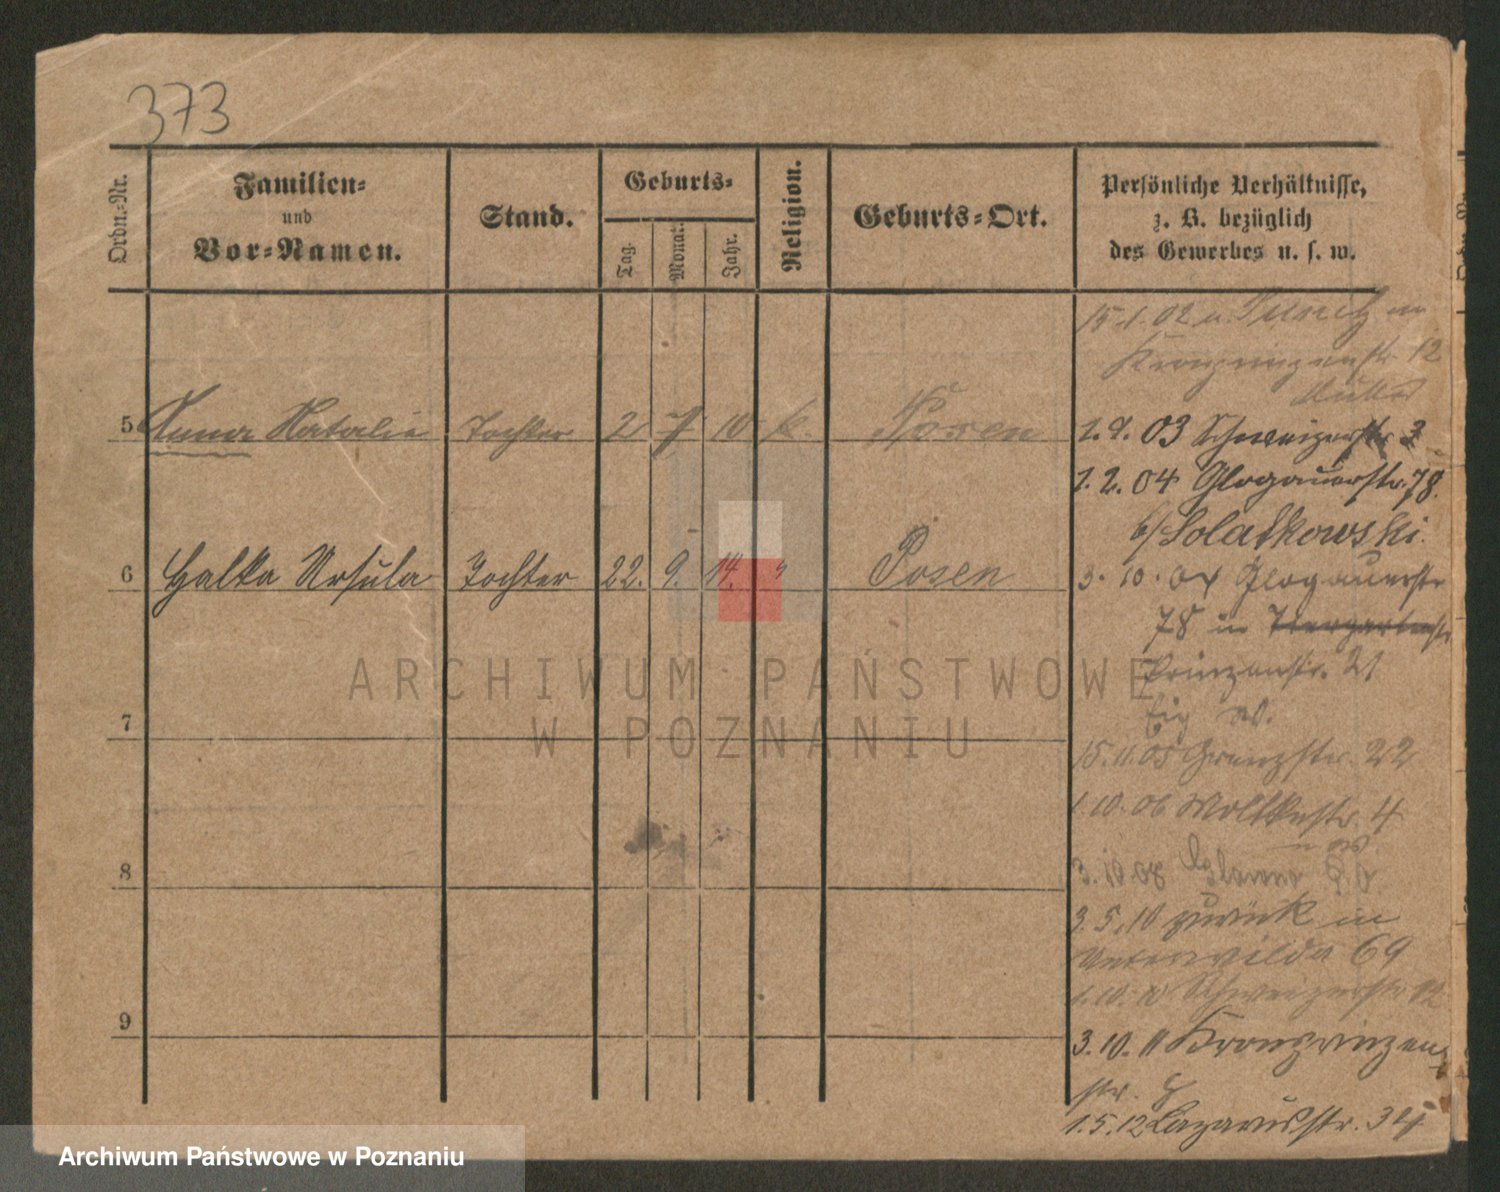 373
Ordn.-Nr.
Familien-
und
Vor-Namen.
Stand.
Geburts-
Tag.
Monat.
Jahr.
Religion.
Geburts-Ort.
Persönliche Verhältnisse,
z. B. bezüglich
des Gewerbes u. s. w.
15.1.02
Kronprinzenstr. 12
5 Anna Natalie Tochter 2 7 10 k. Posen
1.9.03 Schweizerstr. 3
1.2.04 Glogauerstr. 78.
b/ Solatkowski.
6 Halka Ursula Tochter 22. 9. 14. " Posen
3.10.04 Glogauerstr
78 in Tiergartenstr
Prinzenstr. 21
ARCHIWUM PAŃSTWOWE
W POZNANIU
7
15.11.05 Grenzstr. 22
1.10.06 Moltkestr. 4
8
3.10.08
3.5.10 zurück in
Unterwilda 69
1.10.10 Schweizerstr 12
9
3.10.11 Kronprinzen
str.
1.5.12 Lazarusstr. 34
Archiwum Państwowe w Poznaniu